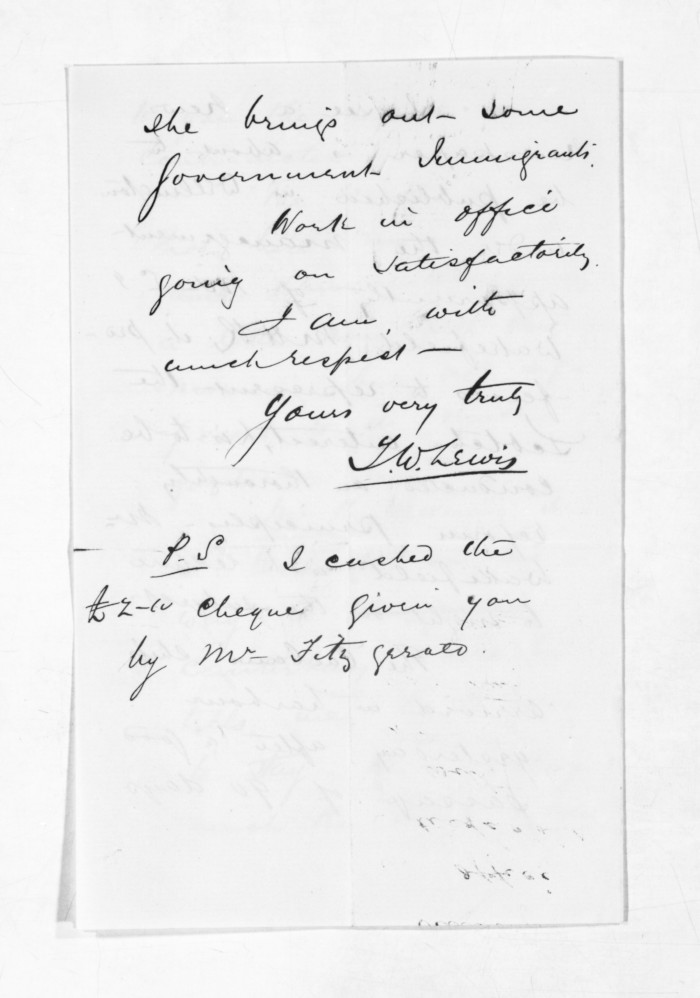 she brings out some
Government Immigrants.
Work in office
going on satisfactorily.
I am, with
much respect —
Yours very truly
T.W. Lewis
P.S I cashed the
£2-10 cheque given you
by Mr Fitzgerald.